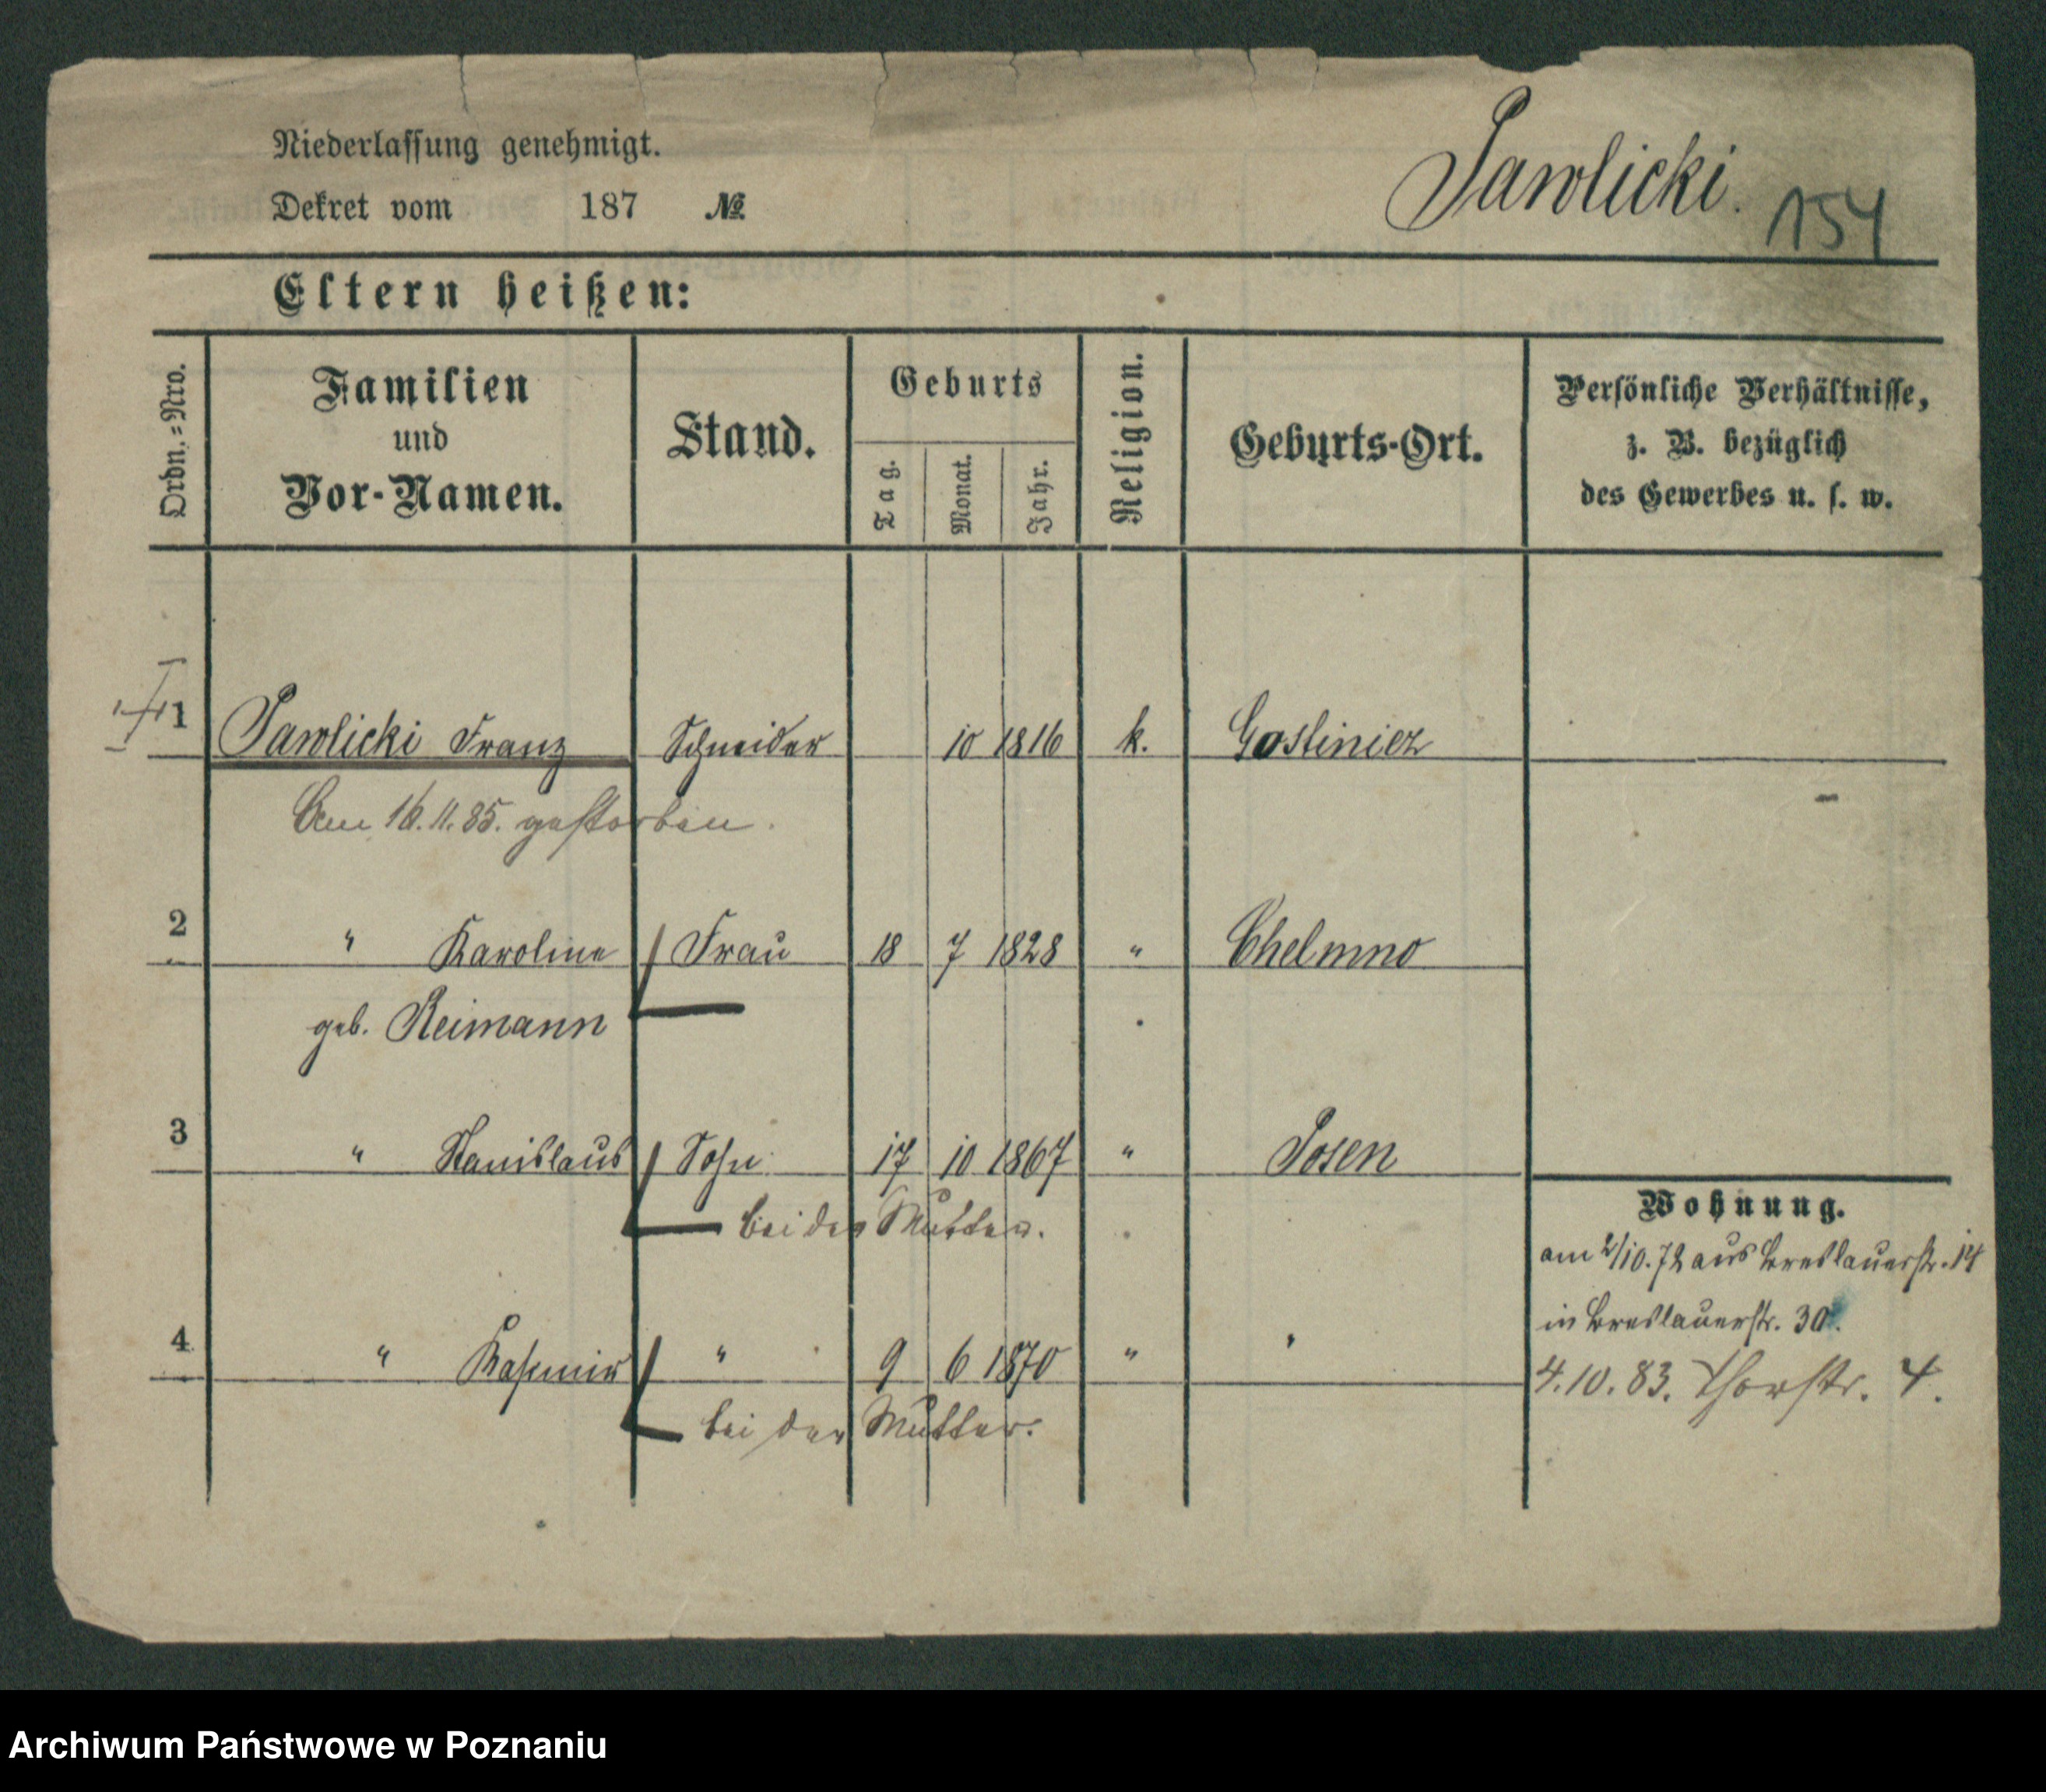 Niederlassung genehmigt.
Dekret vom 187 №
Pawlicki. 154
Eltern heißen:
Ordn.=Nro. Familien und Vor-Namen. Stand. Geburts Tag. Monat. Jahr. Religion. Geburts-Ort. Persönliche Verhältnisse, z. B. bezüglich des Gewerbes u. s. w.
1 Pawlicki Franz Schneider 10 1816 k. Gostiniez
Am 16.11.85. gestorben.
2 " Karoline Frau 18 7 1828 " Chelmno
geb. Reimann
3 " Stanislaus Sohn 17 10 1867 " Posen
bei der Mutter.
Wohnung.
am 2/10.72 aus Breslauerstr. 14
in Breslauerstr. 30.
4 " Kasimir " 9 6 1870 " "
4.10.83. Thorstr. 4.
bei der Mutter.
Archiwum Państwowe w Poznaniu